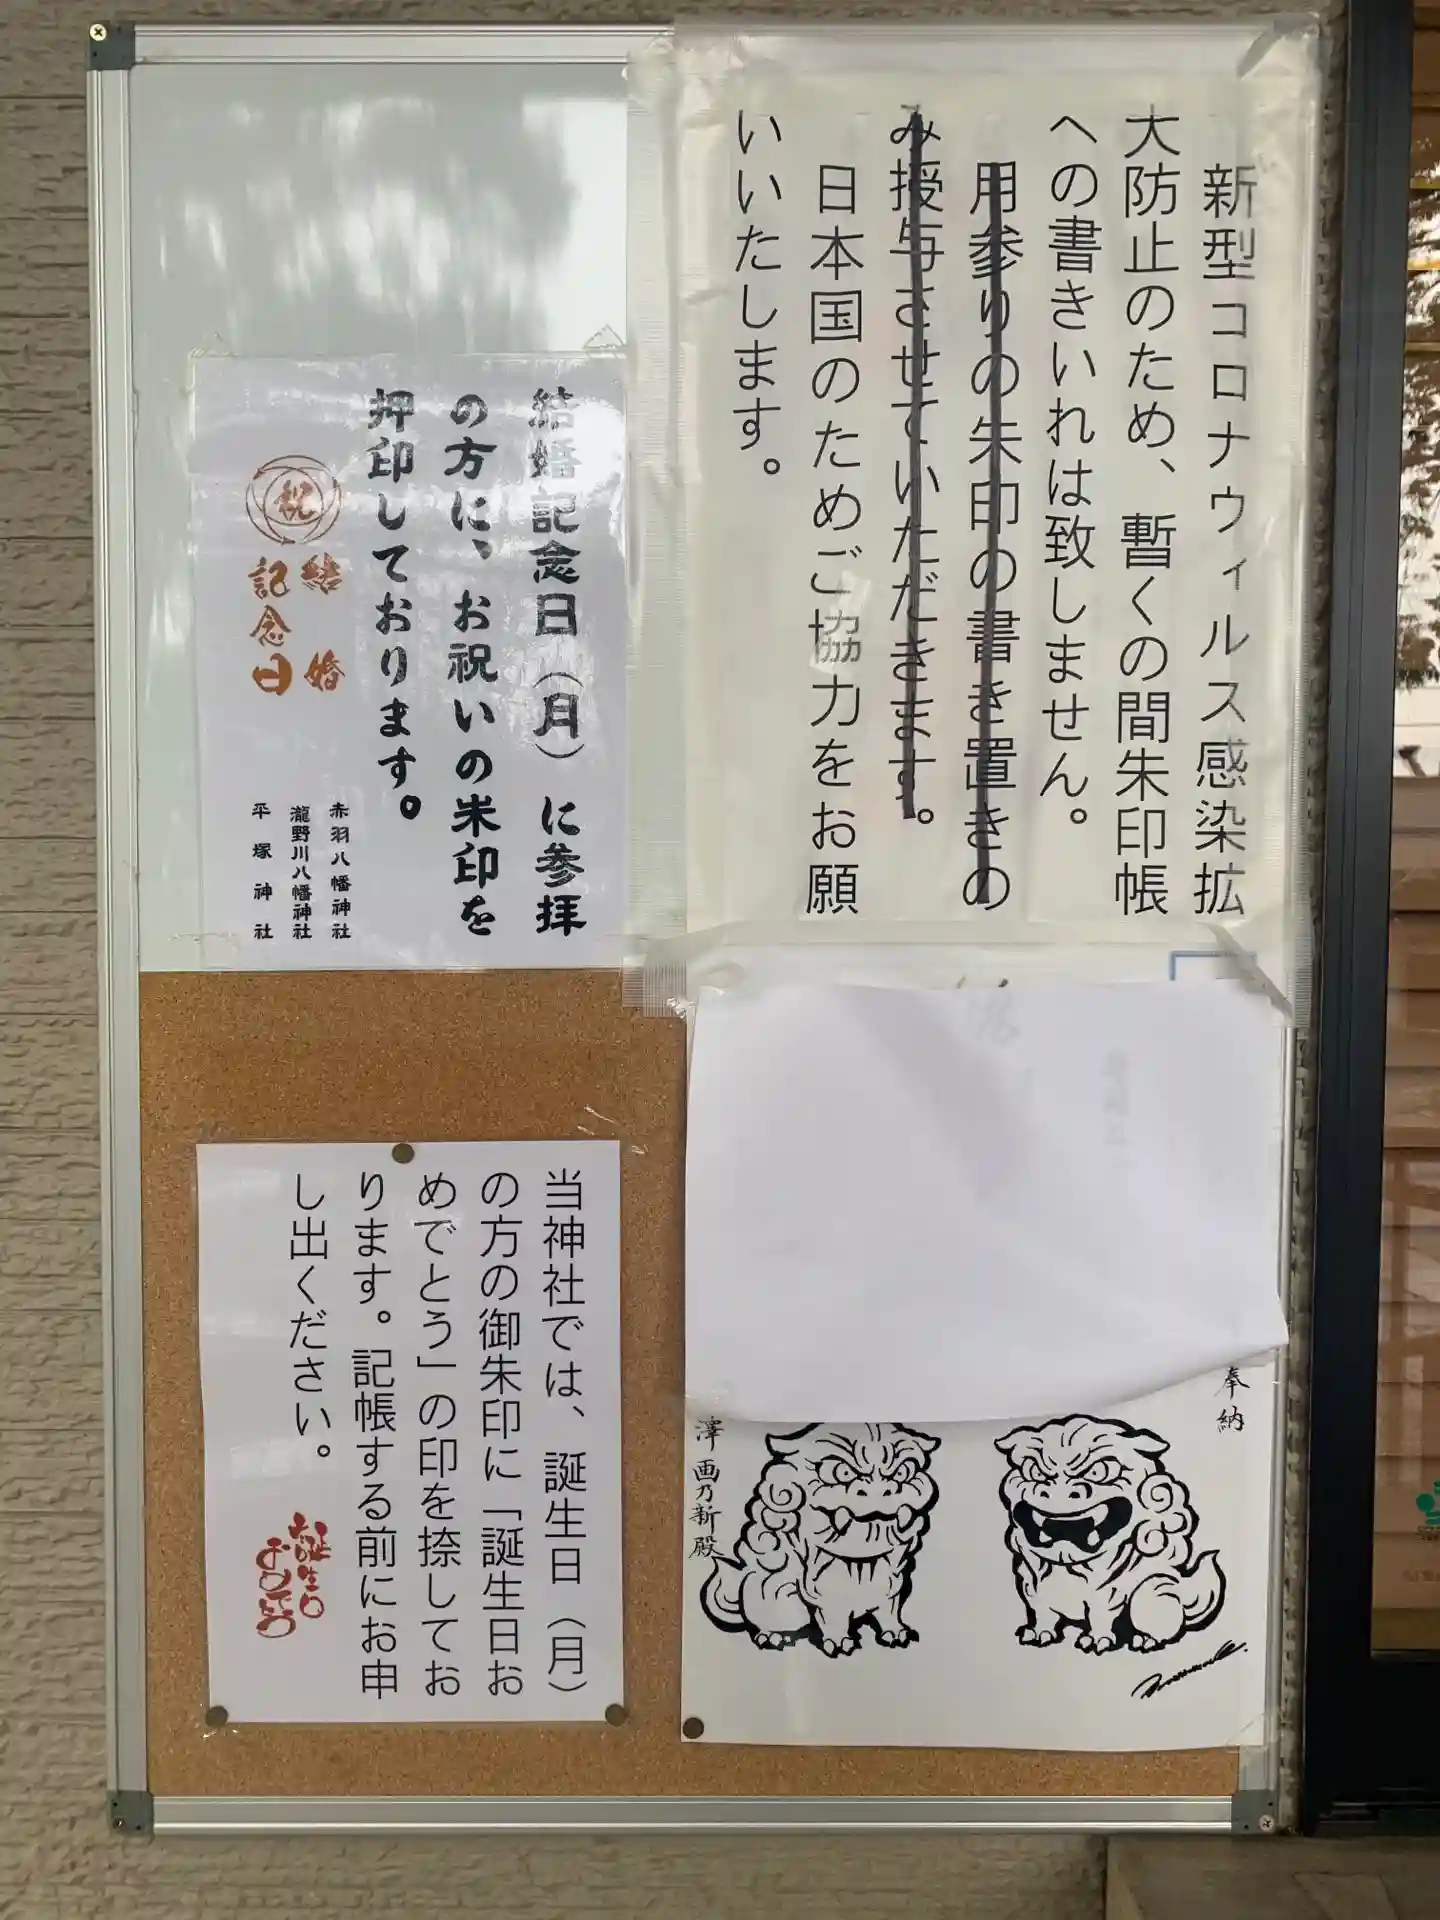 新型コロナウィルス感染拡
大防止のため、暫くの間朱印帳
への書きいれは致しません。
月参りの朱印の書き置きの
み授与させていただきます。
日本国のためご協力をお願
いいたします。
結婚記念日（月）に参拝
の方に、お祝いの朱印を
押印しております。
祝
結婚
記念日
赤羽八幡神社
瀧野川八幡神社
平塚神社
奉納
澤画乃新殿
当神社では、誕生日（月）
の方の御朱印に「誕生日お
めでとう」の印を捺してお
ります。記帳する前にお申
し出ください。
お誕生日
おめでとう